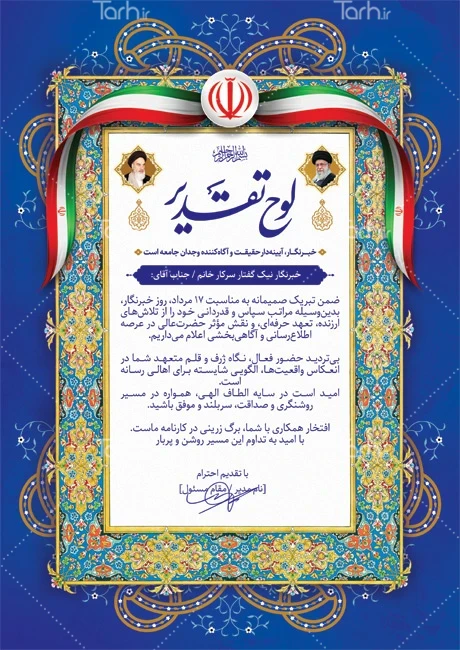 Tarh.ir
Tarh.ir
بسم الله الرحمن الرحیم
لوح تقدیر
خبرنگار، آیینه‌دار حقیقت و آگاه‌کننده وجدان جامعه است
خبرنگار نیک گفتار سرکار خانم / جناب آقای:
ضمن تبریک صمیمانه به مناسبت ۱۷ مرداد، روز خبرنگار،
بدین‌وسیله مراتب سپاس و قدردانی خود را از تلاش‌های
ارزنده، تعهد حرفه‌ای، و نقش مؤثر حضرت‌عالی در عرصه
اطلاع‌رسانی و آگاهی‌بخشی اعلام می‌داریم.
بی‌تردید حضور فعال، نگاه ژرف و قلم متعهد شما در
انعکاس واقعیت‌ها، الگویی شایسته برای اهالی رسانه
است.
امید است در سایه الطاف الهی، همواره در مسیر
روشنگری و صداقت، سربلند و موفق باشید.
افتخار همکاری با شما، برگ زرینی در کارنامه ماست.
با امید به تداوم این مسیر روشن و پربار
با تقدیم احترام
[نام مدیر / مقام مسئول]